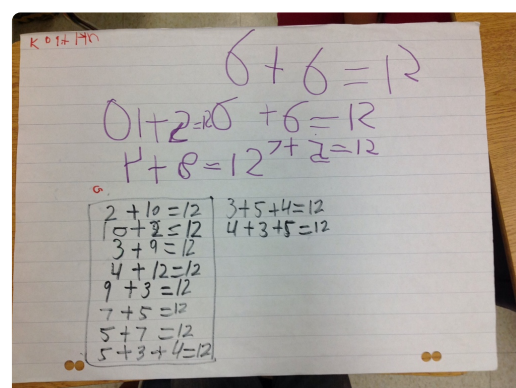 6 + 6 = 12
01+2=12 6 + 6 = 12
4+8=12 7+ 2=12
2+10=12
10+2=12
3+9=12
4+12=12
9+3=12
7+5=12
5+7=12
5+3+4=12
3+5+4=12
4+3+5=12